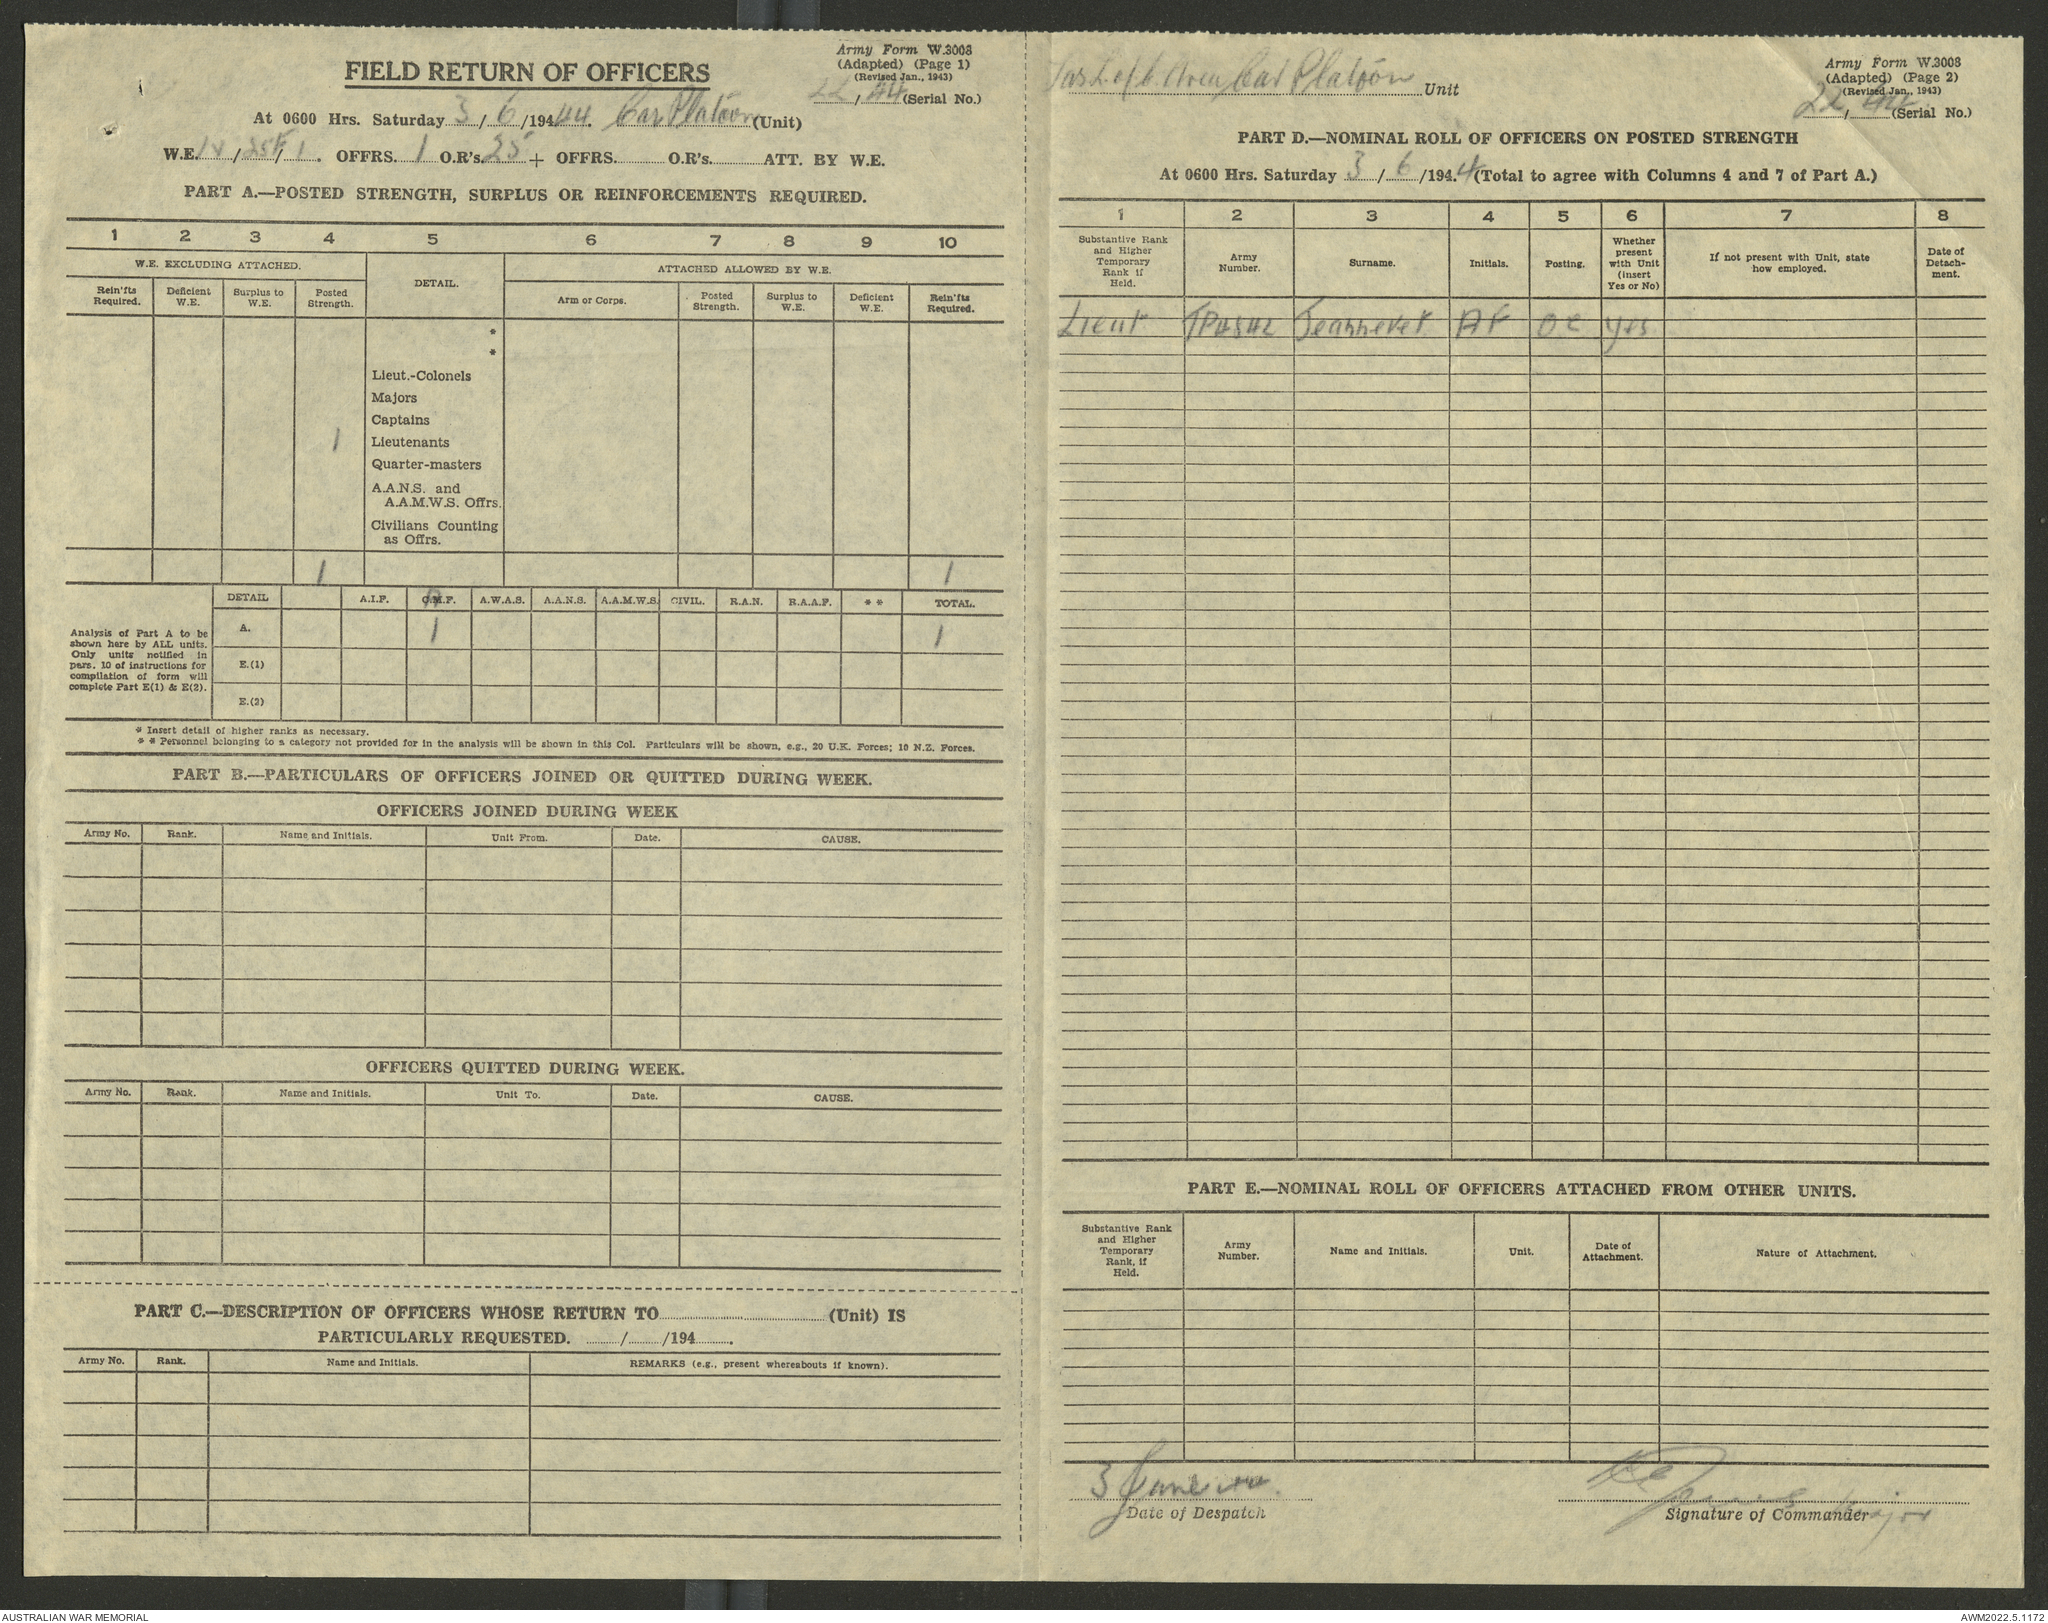 Army Form W.3008
(Adapted) (Page 1)
(Revised Jan., 1943)
22, 44 (Serial No.)
FIELD RETURN OF OFFICERS
At 0600 Hrs. Saturday 3/6/194 44. Car Platoon (Unit)
W.E. / / 1. OFFRS. 1 O.R's. 25 + OFFRS. O.R's. ATT. BY W.E.
PART A.—POSTED STRENGTH, SURPLUS OR REINFORCEMENTS REQUIRED.
1 2 3 4 5 6 7 8 9 10
W.E. EXCLUDING ATTACHED. DETAIL. ATTACHED ALLOWED BY W.E.
Rein'fts Required. Deficient W.E. Surplus to W.E. Posted Strength. Arm or Corps. Posted Strength. Surplus to W.E. Deficient W.E. Rein'fts Required.
*
*
Lieut.-Colonels
Majors
Captains
1 Lieutenants
Quarter-masters
A.A.N.S. and
A.A.M.W.S. Offrs.
Civilians Counting
as Offrs.
1 1
DETAIL A.I.F. C.M.F. A.W.A.S. A.A.N.S. A.A.M.W.S. CIVIL. R.A.N. R.A.A.F. * * TOTAL.
A. 1 1
E.(1)
E.(2)
Analysis of Part A to be
shown here by ALL units.
Only units notified in
para. 10 of instructions for
compilation of form will
complete Part E(1) & E(2).
* Insert detail of higher ranks as necessary.
* * Personnel belonging to a category not provided for in the analysis will be shown in this Col. Particulars will be shown, e.g., 20 U.K. Forces; 10 N.Z. Forces.
PART B.—PARTICULARS OF OFFICERS JOINED OR QUITTED DURING WEEK.
OFFICERS JOINED DURING WEEK
Army No. Rank. Name and Initials. Unit From. Date. CAUSE.
OFFICERS QUITTED DURING WEEK.
Army No. Rank. Name and Initials. Unit To. Date. CAUSE.
PART C.—DESCRIPTION OF OFFICERS WHOSE RETURN TO (Unit) IS
PARTICULARLY REQUESTED. / /194 .
Army No. Rank. Name and Initials. REMARKS (e.g., present whereabouts if known).
Army Form W.3008
(Adapted) (Page 2)
(Revised Jan., 1943)
22, 44 (Serial No.)
Tas L of C Area Car Platoon Unit
PART D.—NOMINAL ROLL OF OFFICERS ON POSTED STRENGTH
At 0600 Hrs. Saturday 3/6/194.4 (Total to agree with Columns 4 and 7 of Part A.)
1 2 3 4 5 6 7 8
Substantive Rank and Higher Temporary Rank if Held. Army Number. Surname. Initials. Posting. Whether present with Unit (insert Yes or No) If not present with Unit, state how employed. Date of Detach- ment.
Lieut TP4842 Jeanneret AF OC yes
PART E.—NOMINAL ROLL OF OFFICERS ATTACHED FROM OTHER UNITS.
Substantive Rank and Higher Temporary Rank, if Held. Army Number. Name and Initials. Unit. Date of Attachment. Nature of Attachment.
3 June 44.
Date of Despatch
Major
Signature of Commander
AUSTRALIAN WAR MEMORIAL
AWM2022.5.1172